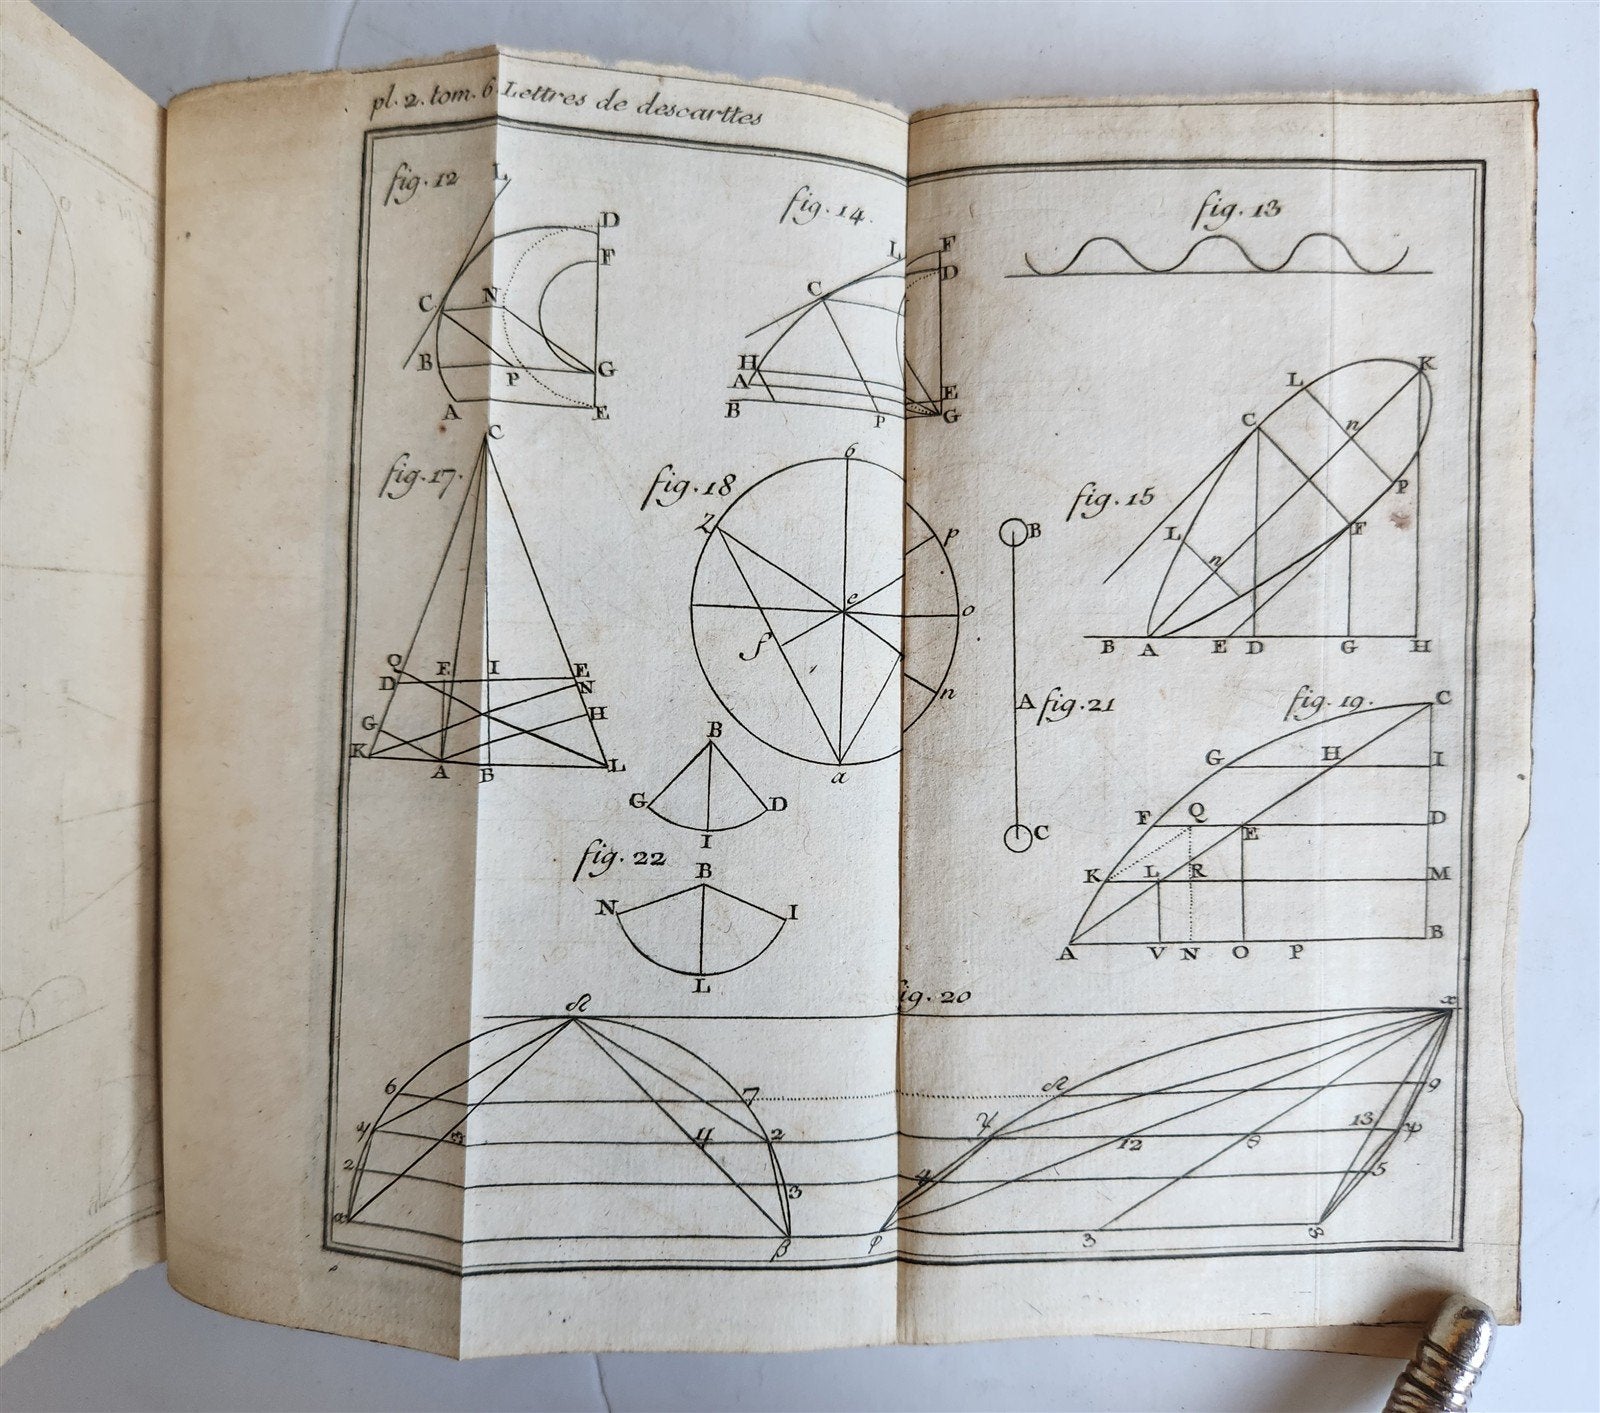 pl. 2. tom. 6 Lettres de descarttes
fig. 12
L
D
F
C N
B P G
A E
fig. 14.
L F
D
C
H
A E
B P G
fig. 13
fig. 15
K
L
C n
P
L F
n
B A E D G H
fig. 17.
C
Q E I E
D N
G H
K A B L
fig. 18
6
Z p
e o
f
n
a
B
A fig. 21
C
fig. 19.
C
G H I
F Q E D
K L R M
A V N O P B
B
G D
I
fig. 22
B
N I
L
ig. 20
x
6 7 9
4 2 12 8 13
2 3 4 5
β φ 3